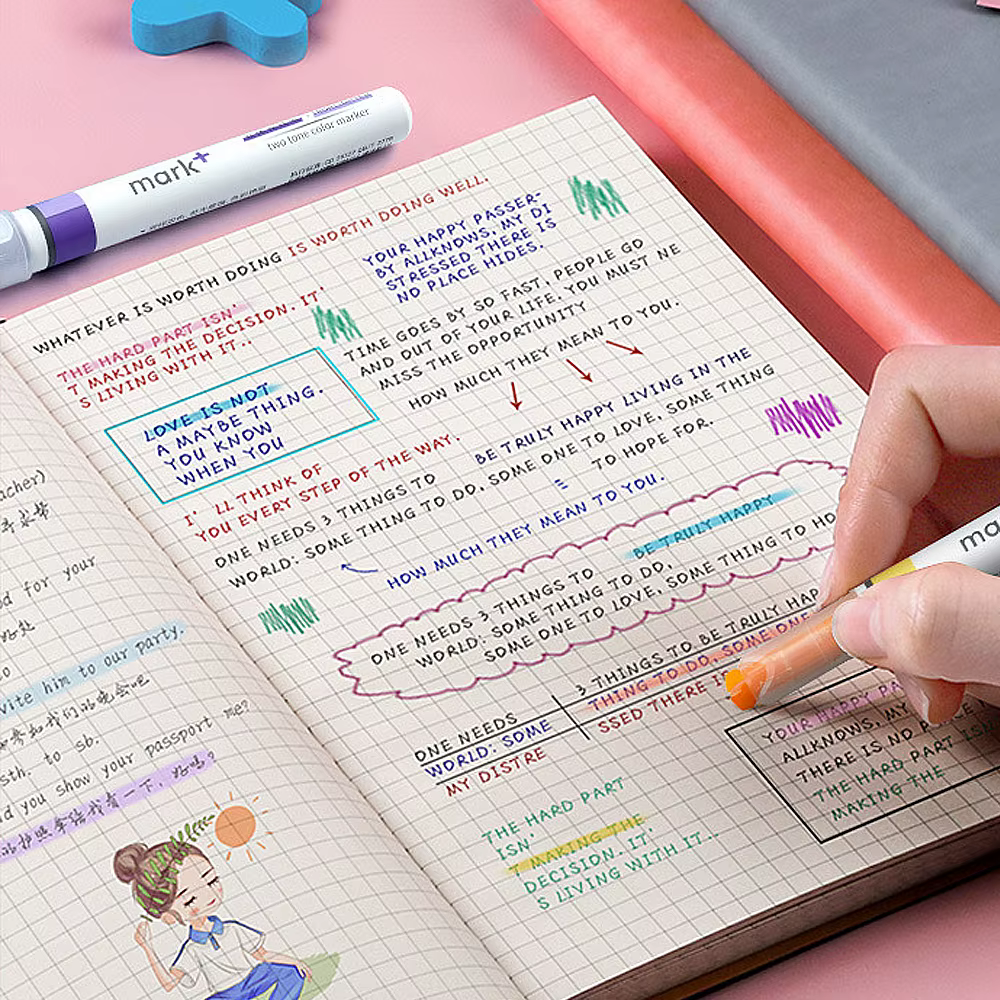 mark+
two tone color marker
WHATEVER IS WORTH DOING IS WORTH DOING WELL.
THE HARD PART ISN'
T MAKING THE DECISION. IT'
S LIVING WITH IT..
YOUR HAPPY PASSER-
BY ALLKNOWS, MY DI
STRESSED THERE IS
NO PLACE HIDES.
LOVE IS NOT
A MAYBE THING.
YOU KNOW
WHEN YOU
TIME GOES BY SO FAST, PEOPLE GO
AND OUT OF YOUR LIFE. YOU MUST NE
MISS THE OPPORTUNITY
HOW MUCH THEY MEAN TO YOU.
I' LL THINK OF
YOU EVERY STEP OF THE WAY.
BE TRULY HAPPY LIVING IN THE
ONE NEEDS 3 THINGS TO
WORLD: SOME THING TO DO, SOME ONE TO LOVE, SOME THING
TO HOPE FOR.
HOW MUCH THEY MEAN TO YOU.
BE TRULY HAPPY
ONE NEEDS 3 THINGS TO
WORLD: SOME THING TO DO,
SOME ONE TO LOVE, SOME THING TO HO
ONE NEEDS
3 THINGS TO BE TRULY HAP
WORLD: SOME
THING TO DO, SOME ONE
MY DISTRE
SSED THERE I
YOUR HAPPY PA
ALLKNOWS, MY
THERE IS NO PLACE
THE HARD PART ISN
MAKING THE
THE HARD PART
ISN'
T MAKING THE
DECISION. IT'
S LIVING WITH IT...
acher)
d for your
vite him to our party.
sth. to sb.
d you show your passport me?
ma